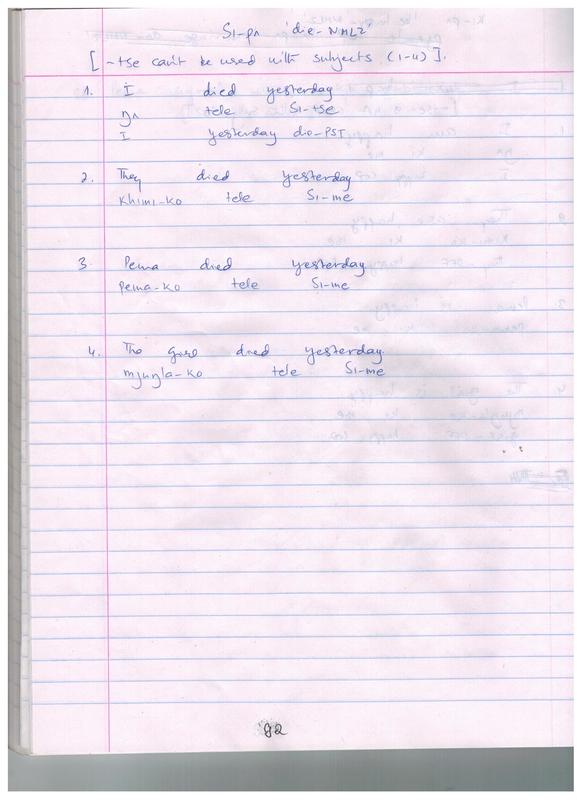 SI-pʌ 'die-NML2'
[ -tse can't be used with subjects (1-4) ].
1. I died yesterday
ŋʌ tele SI-tse
I yesterday die-PST
2. They died yesterday
khimi-ko tele SI-me
3 Pema died yesterday
pema-ko tele SI-me
4. The died yesterday.
tele SI-me
82